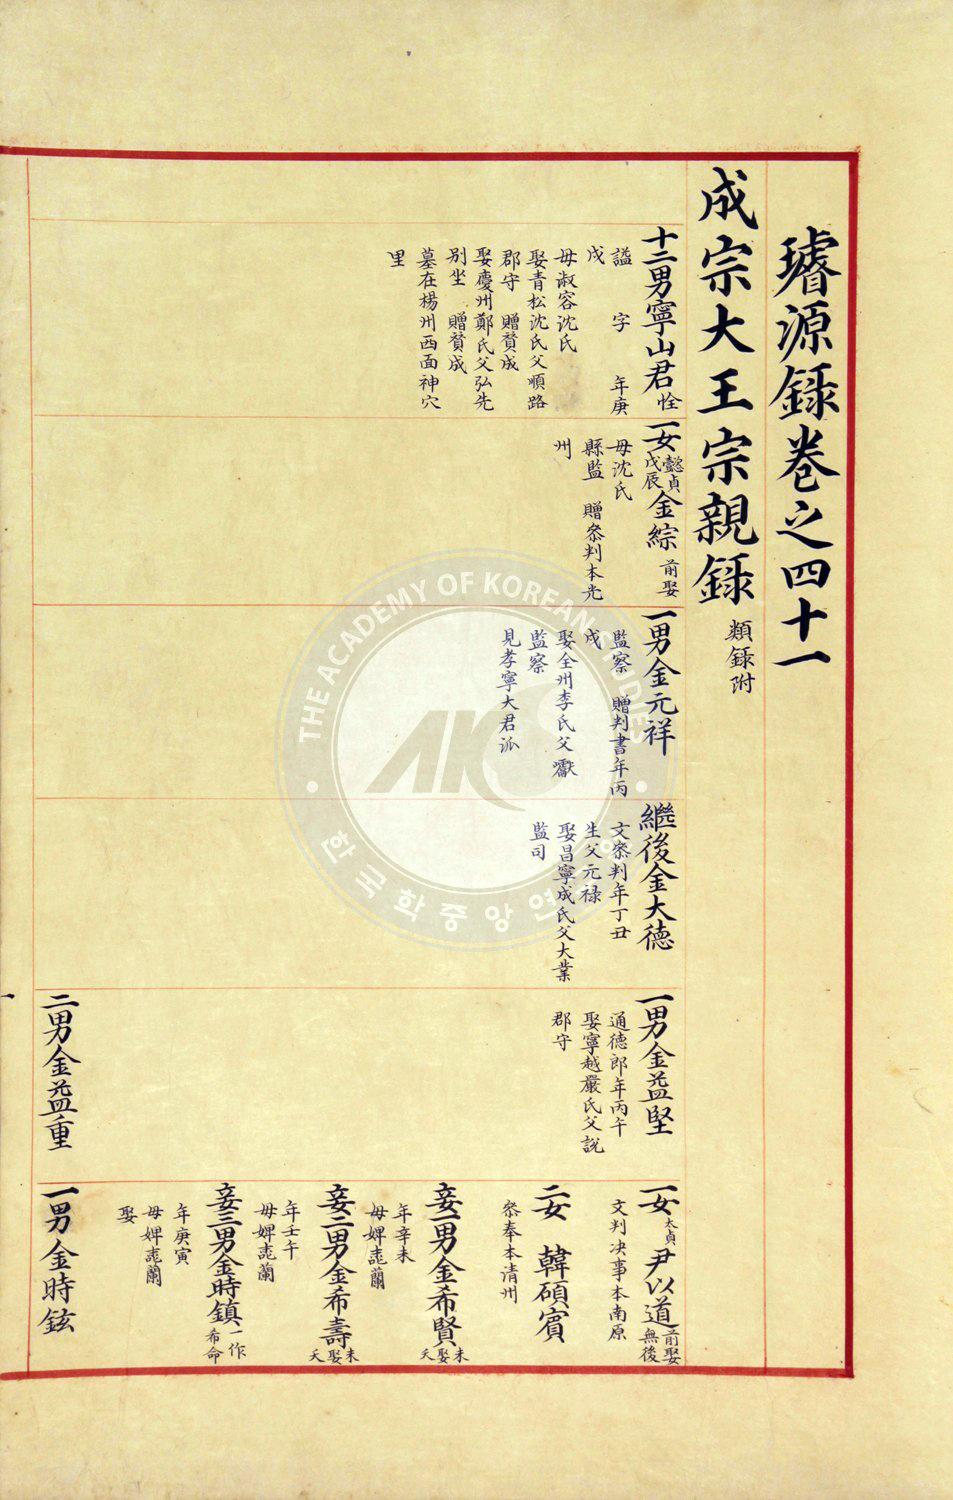 璿源錄卷之四十一
成宗大王宗親錄 類錄附
十二男寧山君恮
謚 字 年庚
戌
母淑容沈氏
娶青松沈氏父順路
郡守 贈贊成
娶慶州鄭氏父弘先
別坐 贈贊成
墓在楊州西面神穴
里
一女 懿貞 戊辰 金綜 前娶
母沈氏
縣監 贈叅判本光
州
一男金元祥
監察 贈判書年丙
戌
娶全州李氏父獻
監察
見孝寧大君派
繼後金大德
文叅判年丁丑
生父元祿
娶昌寧成氏父大業
監司
一男金益堅
通德郎年丙午
娶寧越嚴氏父說
郡守
一女 太貞 尹以道 前娶 無後
文判决事本南原
二女 韓碩賓
叅奉本清州
妾一男金希賢 未娶夭
年辛未
母婢莣蘭
妾二男金希壽 未娶夭
年壬午
母婢莣蘭
妾三男金時鎮 一作 希命
年庚寅
母婢莣蘭
娶
二男金益重
一男金時鉉
一
THE ACADEMY OF KOREAN STUDIES
AKS
한국학중앙연